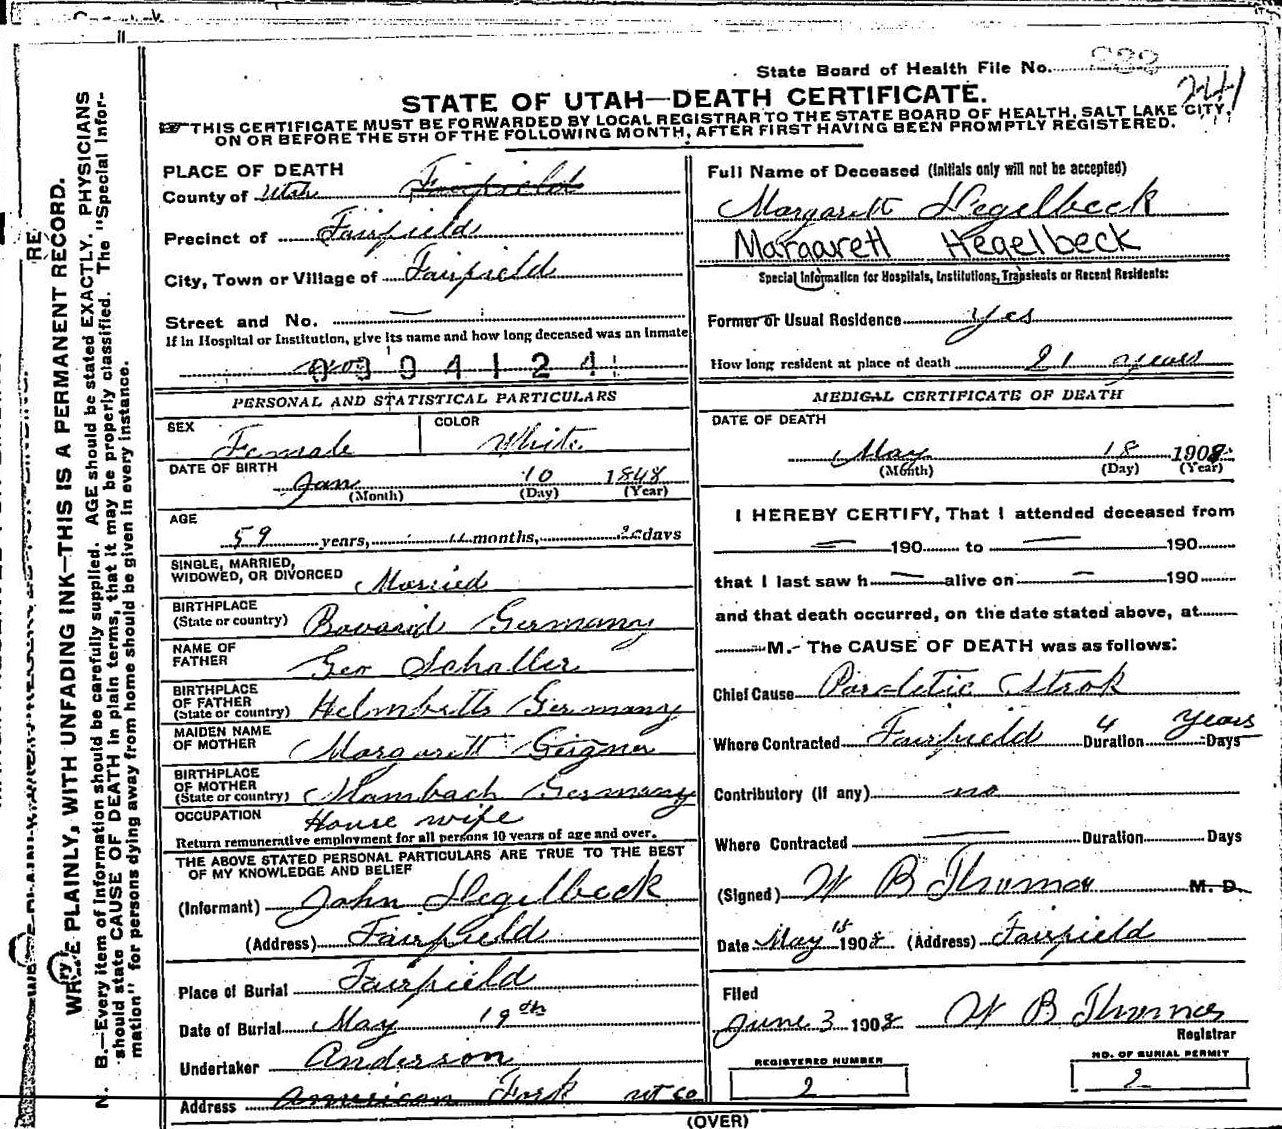 State Board of Health File No. 232
241
STATE OF UTAH—DEATH CERTIFICATE.
THIS CERTIFICATE MUST BE FORWARDED BY LOCAL REGISTRAR TO THE STATE BOARD OF HEALTH, SALT LAKE CITY,
ON OR BEFORE THE 5TH OF THE FOLLOWING MONTH, AFTER FIRST HAVING BEEN PROMPTLY REGISTERED.
WRITE PLAINLY, WITH UNFADING INK—THIS IS A PERMANENT RECORD.
N. B.—Every item of information should be carefully supplied. AGE should be stated EXACTLY. PHYSICIANS
should state CAUSE OF DEATH in plain terms, that it may be properly classified. The "Special Infor-
mation" for persons dying away from home should be given in every instance.
PLACE OF DEATH
County of Utah Fairfield
Precinct of Fairfield
City, Town or Village of Fairfield
Street and No. —
If in Hospital or Institution, give its name and how long deceased was an inmate
0 0 0 4 1 2 4
PERSONAL AND STATISTICAL PARTICULARS
SEX Female COLOR White
DATE OF BIRTH
Jan 10 1848
(Month) (Day) (Year)
AGE
59 years, months, days
SINGLE, MARRIED,
WIDOWED, OR DIVORCED Married
BIRTHPLACE
(State or country) Germany
NAME OF
FATHER Geo Schaller
BIRTHPLACE
OF FATHER
(State or country) Helmbretts Germany
MAIDEN NAME
OF MOTHER Margarett
BIRTHPLACE
OF MOTHER
(State or country) Germany
OCCUPATION House wife
Return remunerative employment for all persons 10 years of age and over.
THE ABOVE STATED PERSONAL PARTICULARS ARE TRUE TO THE BEST
OF MY KNOWLEDGE AND BELIEF
(Informant) John Hegelbeck
(Address) Fairfield
Place of Burial Fairfield
Date of Burial May 19th
Undertaker Anderson
Address American Fork ut co
Full Name of Deceased (Initials only will not be accepted)
Margarett Hegelbeck
Margarett Hegelbeck
Special Information for Hospitals, Institutions, Transients or Recent Residents:
Former or Usual Residence yes
How long resident at place of death 21 years
MEDICAL CERTIFICATE OF DEATH
DATE OF DEATH
May 18 1908
(Month) (Day) (Year)
I HEREBY CERTIFY, That I attended deceased from
— 190 to — 190
that I last saw h — alive on — 190
and that death occurred, on the date stated above, at
M. The CAUSE OF DEATH was as follows:
Chief Cause Paraletic Strok
Where Contracted Fairfield Duration 4 years Days
Contributory (If any) no
Where Contracted — Duration Days
(Signed) W B Thomas M. D.
Date May 1908 (Address) Fairfield
Filed
June 3 1908 W B Thomas
Registrar
REGISTERED NUMBER
2
NO. OF BURIAL PERMIT
2
(OVER)